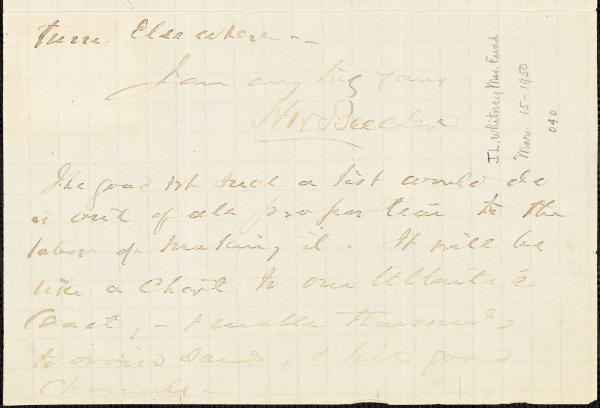 turn Elsewhere --
I am very truly yours
H W Beecher
The good wh such a list would do
is out of all proportion to the
labor of making it. It will be
like a Chart to our Atlantic
Coast, - & enable thousands
to avoid sands, & hit good
Channels -
J. L. Whitney Mss. Fund
Mar. 15-1950
040